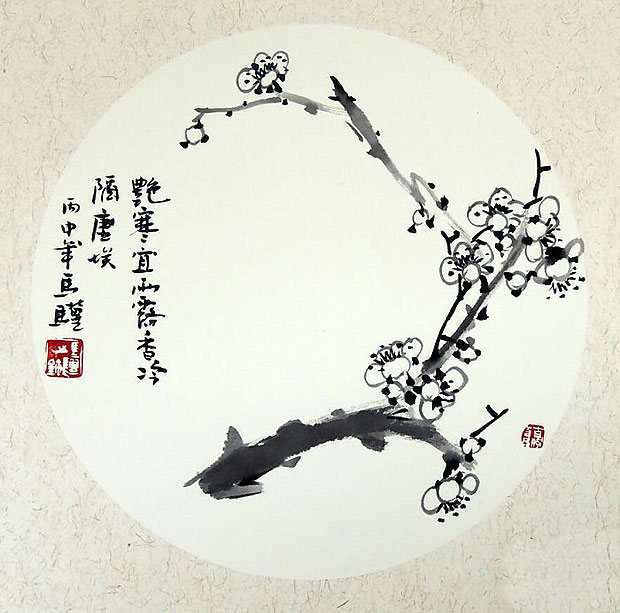 艷寒宜雨露香冷
隔塵埃
丙申年